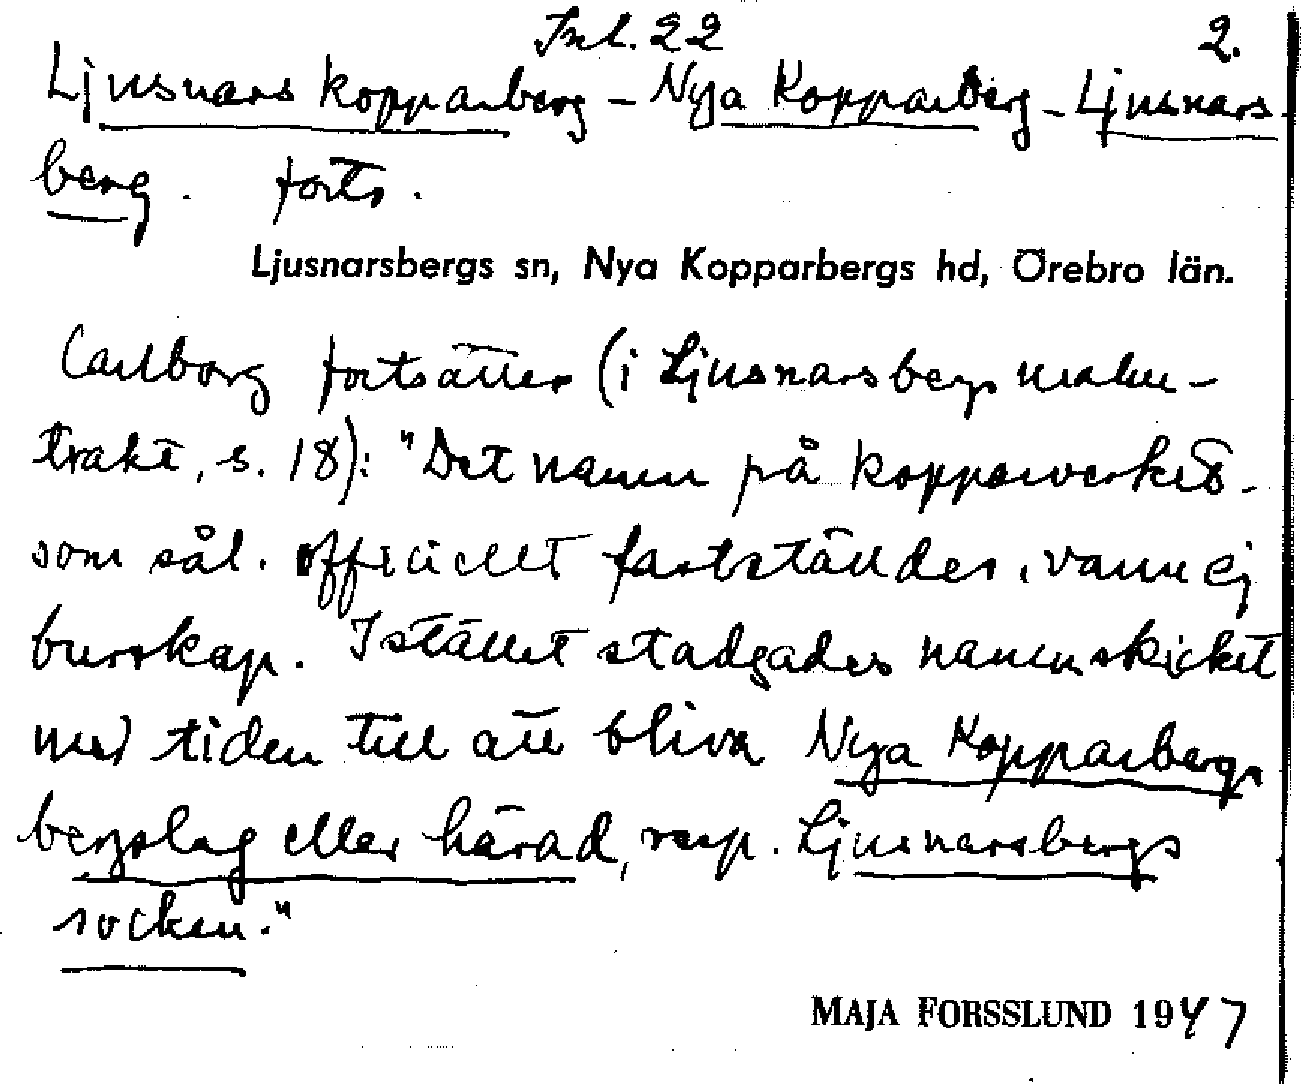 Inl. 22 2.
Ljusnars kopparberg – Nya Kopparberg – Ljusnars-
berg. forts.
Ljusnarsbergs sn, Nya Kopparbergs hd, Örebro län.
Carlborg fortsätter (i Ljusnarsbergs malm-
trakt, s. 18): "Det namn på kopparverket
som sål. officiellt fastställdes, vann ej
burskap. Istället stadgades namnskicket
med tiden till att bliva Nya Kopparbergs
bergslag eller härad, resp. Ljusnarsbergs
socken."
MAJA FORSSLUND 1947